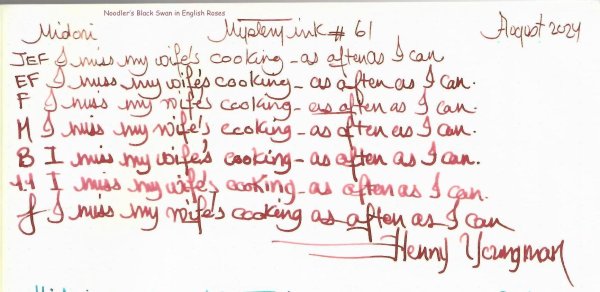 Noodler's Black Swan in English Roses
Midori Mystery ink # 61 August 2024
JEF I miss my wife's cooking - as often as I can
EF I miss my wife's cooking - as often as I can.
F I miss my wife's cooking - as often as I can.
M I miss my wife's cooking - as often as I can.
B I miss my wife's cooking - as often as I can.
1.1 I miss my wife's cooking - as often as I can.
f I miss my wife's cooking as often as I can
Henny Youngman
Midori